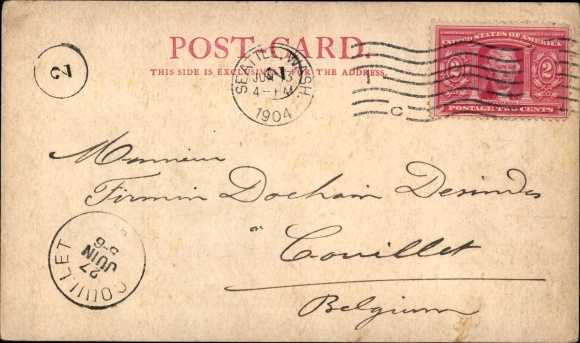 POST CARD.
THIS SIDE IS EXCLUSIVELY FOR THE ADDRESS.
2
SEATTLE, WASH.
4-PM
1904
1
C
UNITED STATES OF AMERICA
2 2
POSTAGE TWO CENTS
Monsieur
Firmin Dochain
à Couillet
Belgium
COUILLET
27
JUIN
5-6